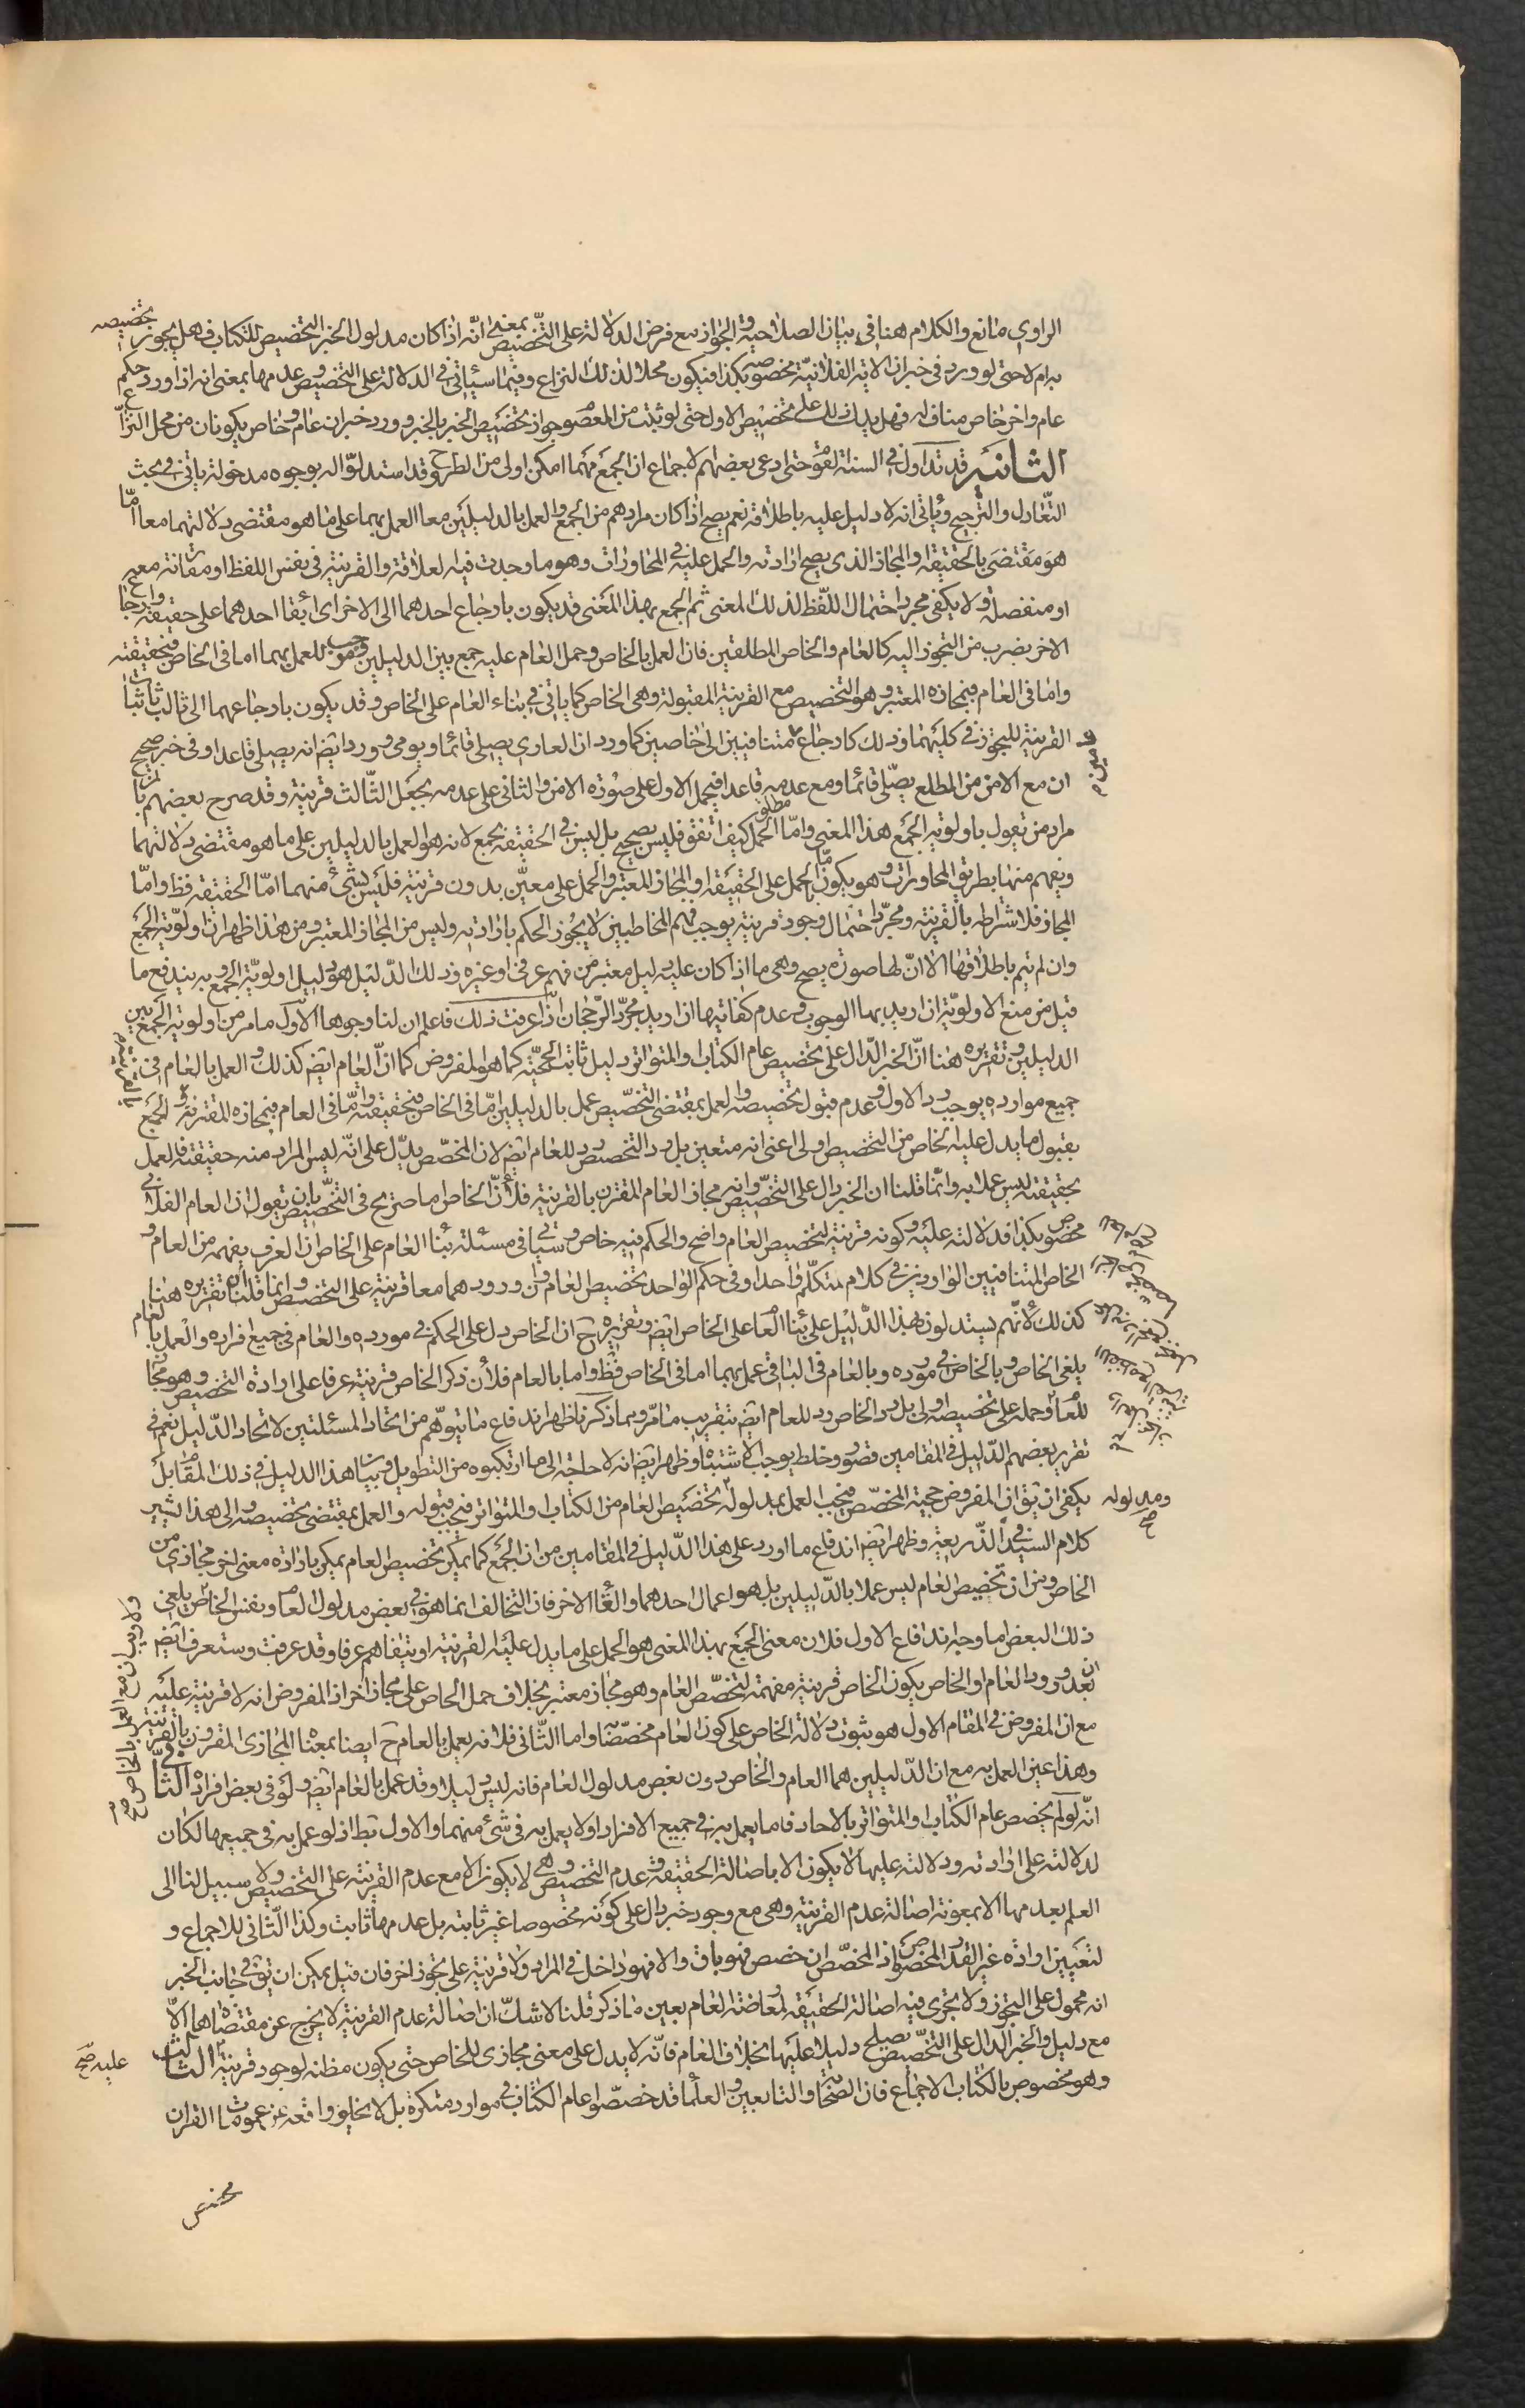 الراوى مانع والكلام هنا فى بيان الصلاحية والجواز مع فرض الدلالة على التخصيص بمعنى انّه اذا كان مدلول الخبر التخصيص للكتاب فهل يجوز تخصيصه
به ام لا حتى لو ورد فى خبر ان الاية الفلانيّة مخصوصة بكذا فيكون محلا لذلك النزاع وفيما سيأتى فى الدلالة على التخصيص وعدمها بمعنى انه اذا ورد حكم
عام واخر خاص مناف له فهل يدل ذلك على تخصيص الاول حتى لو ثبت من المعصوم جواز تخصيص الخبر بالخبر وورد خبران عام وخاص يكونان من محل النزاع
الثانية قد تداول فى السنة القوم حتى ادعى بعضهم الاجماع ان الجمع مهما امكن اولى من الطرح وقد استدلوا له بوجوه مدخولة ياتى فى بحث
التّعادل والترجيح وياتى انه لا دليل عليه باطلاقه نعم يصح اذا كان مرادهم من الجمع والعمل بالدليلين معا العمل بهما على ما هو مقتضى دلالتهما معا امّا
هو مقتضى بالحقيقة او المجاز الذى يصح ارادته والحمل عليه فى المحاورات وهو ما وجدت فيه العلاقة والقرينة فى نفس اللفظ او مقارنة معه
او منفصلة ولا يكفى مجرد احتمال اللّفظ لذلك المعنى ثم الجمع بهذا المعنى قد يكون بارجاع احدهما الى الاخر اى ابقاء احدهما على حقيقته وارجاع
الاخر بضرب من التجوز اليه كالعام والخاص المطلقين فان العمل بالخاص وحمل العام عليه جمع بين الدليلين وموجب للعمل بهما اما فى الخاص فبحقيقته
واما فى العام فبمجازه المعتبر وهو التخصيص مع القرينة المقبولة وهى الخاص كما ياتى فى بناء العام على الخاص وقد يكون بارجاعهما الى ثالث باثبات
القرينة للتجوز فى كليهما وذلك كارجاع متنافيين الى خاصين كما ورد ان العارى يصلى قائما ويومى وورد ايضا انه يصلى قاعدا وفى خبر صحيح
ان مع الامن من المطلع يصّلى قائما ومع عدمه قاعدا فيحمل الاول على صورة الامن والثانى على عدمه بجعل الثّالث قرينة وقد صرح بعضهم بان
مراد من تقول باولوية الجمع هذا المعنى وامّا الحمل مطلقا كيف اتفق فليس بصحيح بل ليس فى الحقيقة بجمع لانه هو العمل بالدليلين على ما هو مقتضى دلالتهما
ويفهم منها بطريق المحاورات وهو يكون امّا بالحمل على الحقيقة او المجاز المعتبر والحمل على معيّن بدون قرينة فليس بشئ منهما امّا الحقيقة فظ وامّا
المجاز فلاشتراطه بالقرينة ومجرّد احتمال وجود قرينة يوجب فهم المخاطبين لا يجوز الحكم بارادته وليس من المجاز المعتبر ومن هذا ظهر ان اولويّة الجمع
وان لم تيم باطلاقها الا انّ لها صورة يصح وهى ما اذا كان عليه دليل معتبر من فهم عرفى او غيره وذلك الدّليل هو دليل اولويّة الجمع وبه يندفع ما
قيل من منع الاولويّة ان اريد بها الوجوب وعدم كفايتها ان اريد مجرّد الرّجحان اذا عرفت ذلك فاعلم ان لنا وجوها الاوّل ما مر من اولوية الجمع بين
الدليلين وتقريره هنا انّ الخبر الدّال على تخصيص عام الكتاب او المتواتر دليل ثابت الحجيّة كما هو المفروض كما انّ العام ايضا كذلك والعمل بالعام فى
جميع موارده يوجب رد الاول وعدم قبول تخصيصه والعمل بمقتضى التخصّيص عمل بالدليلين امّا فى الخاص فبحقيقته وامّا فى العام فبمجازه المقترن الجمع
بقبول ما يدل عليه الخاص من التخصيص اولى اعنى انه متعين بل رد التخصيص رد للعام ايضا لان المخصّص يدّل على انّه ليس المراد منه حقيقته فالعمل
بحقيقته ليس عملا به وانّما قلنا ان الخبر دال على التخصّيص وانه مجاز العام المقترن بالقرينة فلأنّ الخاص اما صريح فى التخصّيص بان تقول ان العام الفلانى
مخصوص بكذا فدلالته عليه وكونه قرينة لتخصيص العام واضح والحكم فيه خاص وسياتى فى مسئلة بناء العام على الخاص ان العرف يفهمه من العام و
الخاص المتنافيين الواردين فى كلام متكلّم واحد او فى حكم الواحد تخصيص العام وان ورودهما معا قرينة على التخصيص وانما قلنا ان تقريره هنا
كذلك لأنّهم يستدلون بهذا الدّليل على بناء العام على الخاص ايضا وتقريره ح ان الخاص دل على الحكم فى مورده والعام فى جميع افراده والعمل بالعام
يلغى الخاص وبالخاص فى مورده وبالعام فى الباقى عمل بهما اما فى الخاص فظ واما بالعام فلأن ذكر الخاص قرينة عرفا على ارادة التخصيص وهو مجاز
للعام وحمله على تخصيصه اولى بل رد الخاص رد للعام ايضا بتقريب ما مرّ وبما ذكرنا ظهر اندفاع ما يتوهّم من اتحاد المسئلتين لاتحاد الدّليل نعم فى
تقرير بعضهم الدّليل فى المقامين قصور وخلط يوجب الاشتباه وظهر ايضا انه لا حاجة الى ما ارتكبوه من التطويل وبيان هذا الدليل فى ذلك المقام بل
يكفى ان يق ان المفروض حجية المخصّص فيجب العمل بمدلوله تخصيص العام من الكتاب او المتواتر فيجب قبوله والعمل بمقتضى تخصيصه والى هذا يشير
كلام السيد فى الذّريعة وظهر ايضا اندفاع ما اورد على هذا الدّليل فى المقامين من ان الجمع كما يمكن تخصيص العام يمكن بارادة معنى اخر مجازى من
الخاص ومن ان تخصيص العام ليس عملا بالدّليلين بل هو اعمال احدهما والغاء الاخر فان التخالف انما هو فى بعض مدلول العام ونفس الخاص يلغى
ذلك البعض اما وجه اندفاع الاول فلان معنى الجمع بهذا المعنى هو الحمل على ما يدل عليه القرينة او يتفاهم عرفا وقد عرفت وستعرف ايضا
ان بعد ورود العام او الخاص يكون الخاص قرينة مفهمة لتخصّص العام وهو مجاز معتبر بخلاف حمل الخاص على مجاز اخر اذ المفروض انه لا قرينة عليه
مع ان المفروض فى المقام الاول هو ثبوت دلالة الخاص على كون العام مخصّصا واما الثّانى فلانه يعمل بالعام ح ايضا بمعناه المجازى المقرون بالقرينة
وهذا عين العمل به مع ان الدّليلين هما العام والخاص دون بعض مدلول العام فانه ليس دليلا وقد عمل بالعام ايضا ولو فى بعض افراده الثانى
انّه لو لم يخصص عام الكتاب او المتواتر بالاحاد فاما يعمل به فى جميع الافراد او لا يعمل به فى شئ منهما والاول بط اذ لو عمل به فى جميعها لكان
لدلالته على ارادته ودلالته عليها لا يكون الا باصالة الحقيقة وعدم التخصيص وهى لا يكون الا مع عدم القرينة على التخصيص ولا سبيل لنا الى
العلم بعدمها الا بمعونة اصالة عدم القرينة وهى مع وجود خبر دال على كونه مخصوصا غير ثابتة بل عدمها ثابت وكذا الثّانى للاجماع و
لتعيين ارادة غير القدر المخصوص اذ المخصّص ان خصص فهو باق والا فهو داخل فى المراد ولا قرينة على تجوز اخر فان قيل يمكن ان يق فى جانب الخبر
انه محمول على التجوز ولا يجرى فيه اصالة الحقيقة لمعارضته العام بعين ما ذكر قلنا لا شكّ ان اصالة عدم القرينة لا يخرج عن مقتضاها الّا
مع دليل والخبر الدال على التخصّيص يصلح دليلا عليها بخلاف العام فانّه لا يدل على معنى مجازى للخاص حتى يكون مظنة لوجود قرينة الثالث
وهو مخصوص بالكتاب الاجماع فان الصّحابة والتابعين والعلماء قد خصّصوا عام الكتاب فى موارد متكثرة بل لا يخلو واقعة عن عمومات القران
ومدلوله
صح
عليه صح